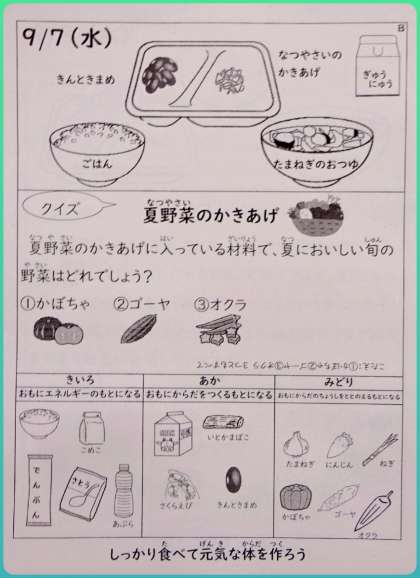 9/7(水)
B
なつやさいの
かきあげ
きんときまめ
ぎゅう
にゅう
ごはん
たまねぎのおつゆ
クイズ
夏野菜のかきあげ
なつやさい
夏野菜のかきあげに入っている材料で、夏においしい旬の
なつ や さい はい ざいりょう なつ しゅん
野菜はどれでしょう?
や さい
①かぼちゃ ②ゴーヤ ③オクラ
こたえ:①かぼちゃ②ゴーヤ③オクラ 3つともすべて
きいろ
おもにエネルギーのもとになる
あか
おもにからだをつくるもとになる
みどり
おもにからだのちょうしをととのえるもとになる
こめこ
でんぷん
さとう
あぶら
いとかまぼこ
さくらえび
きんときまめ
たまねぎ
にんじん
ねぎ
かぼちゃ
ゴーヤ
オクラ
しっかり食べて元気な体を作ろう
た げん き からだ つく